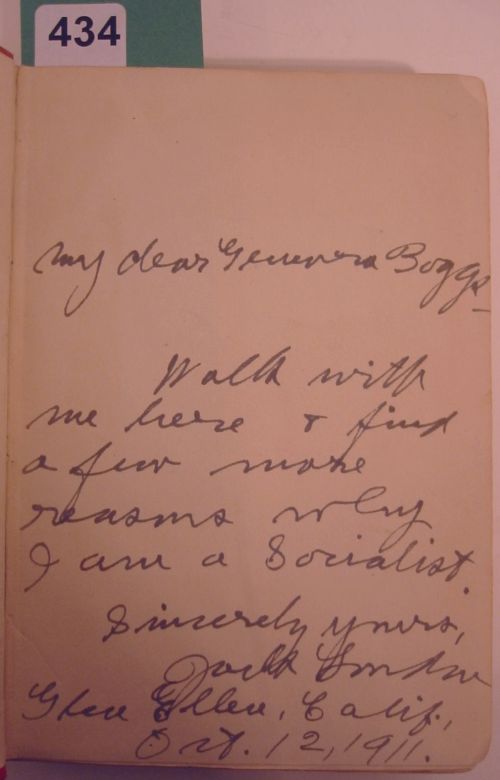 434
My dear Genevera Boggs
Walk with
me here & find
a few more
reasons why
I am a Socialist.
Sincerely yours,
Jack London
Glen Ellen, Calif.,
Oct. 12, 1911.